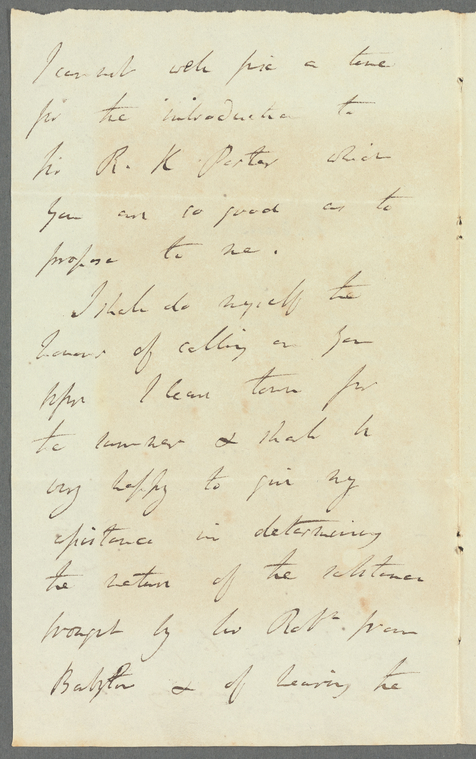 I cannot well fix a time
for the introduction to
Sir R. K Porter which
you are so good as to
propose to me.
I shall do myself the
honour of calling on you
before I leave town for
the summer & shall be
very happy to give my
assistance in determining
the nature of the substances
brought by Sir Robt. from
Babylon & of hearing the